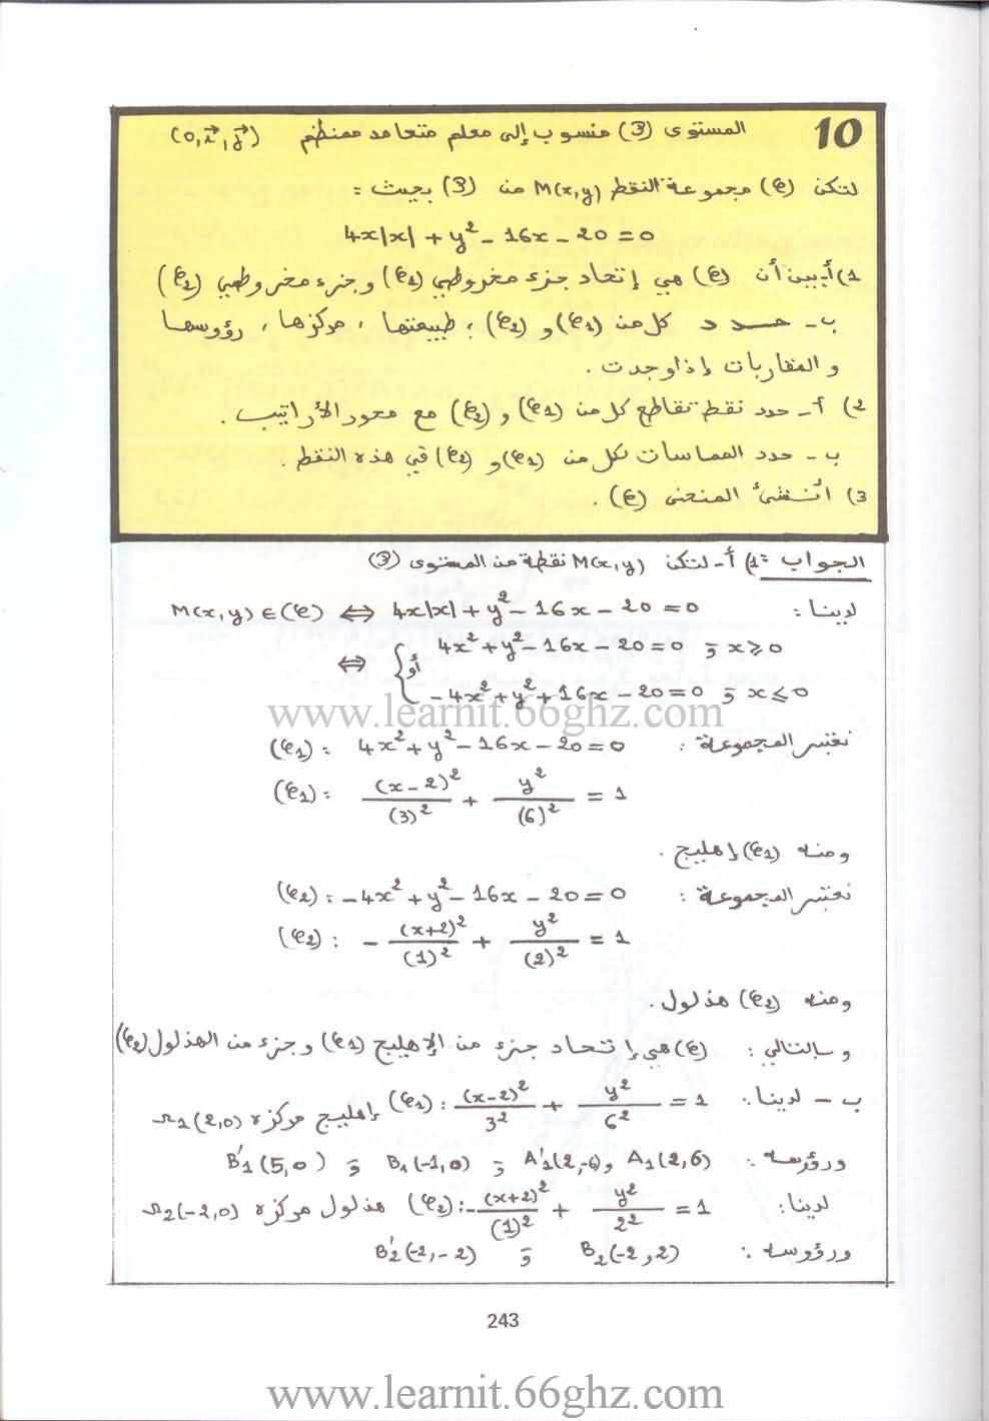 10 المستوى (P) منسوب إلى معلم متعامد ممنظم (O,i⃗,j⃗)
لتكن (C) مجموعة النقط M(x,y) من (P) بحيث :
4x|x| + y² - 16x - 20 = 0
1) أ- بين أن (C) هي إتحاد جزء مخروطي (C₁) وجزء مخروطي (C₂)
ب - حدد كل من (C₁) و (C₂) ؛ طبيعتها ، مركزها ، رؤوسها
و المقاربات إذا وجدت .
2) أ - حدد نقط تقاطع كل من (C₁) و (C₂) مع محور الأراتيب .
ب - حدد المماسات لكل من (C₁) و (C₂) في هذه النقط .
3) أنشئ المنحنى (C) .
الجواب : 1) أ - لتكن M(x,y) نقطة من المستوى (P)
لدينا : M(x,y) ∈ (C) ⇔ 4x|x| + y² - 16x - 20 = 0
⇔ { 4x² + y² - 16x - 20 = 0 و x ⩾ 0
أو
- 4x² + y² + 16x - 20 = 0 و x ⩽ 0
www.learnit.66ghz.com
نعتبر المجموعة : (C₁) : 4x² + y² - 16x - 20 = 0
(C₁) : (x-2)²/(3)² + y²/(6)² = 1
ومنه (C₁) إهليج .
نعتبر المجموعة : (C₂) : -4x² + y² - 16x - 20 = 0
(C₂) : - (x+2)²/(1)² + y²/(2)² = 1
ومنه (C₂) هذلول .
وبالتالي : (C) هي إتحاد جزء من الإهليج (C₁) وجزء من الهذلول (C₂)
ب - لدينا : (C₁) : (x-2)²/3² + y²/6² = 1 إهليج مركزه Ω₁(2,0)
ورؤوسه : A₁(2,6) و A'₁(2,-6) و B₁(-1,0) و B'₁(5,0)
لدينا : (C₂) : - (x+2)²/(1)² + y²/2² = 1 هذلول مركزه Ω₂(-2,0)
ورؤوسه : B₂(-2,2) و B'₂(-2,-2)
243
www.learnit.66ghz.com